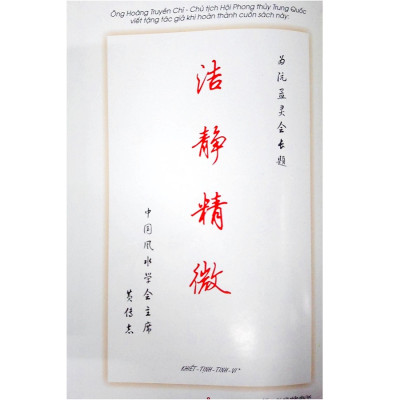 Ông Hoàng Truyền Chí - Chủ tịch Hội Phong thủy Trung Quốc
viết tặng tác giả khi hoàn thành cuốn sách này.
为阮孟灵会长题
洁静精微
中国风水学会主席
黄传志
KHIẾT - TỊNH - TINH - VI"